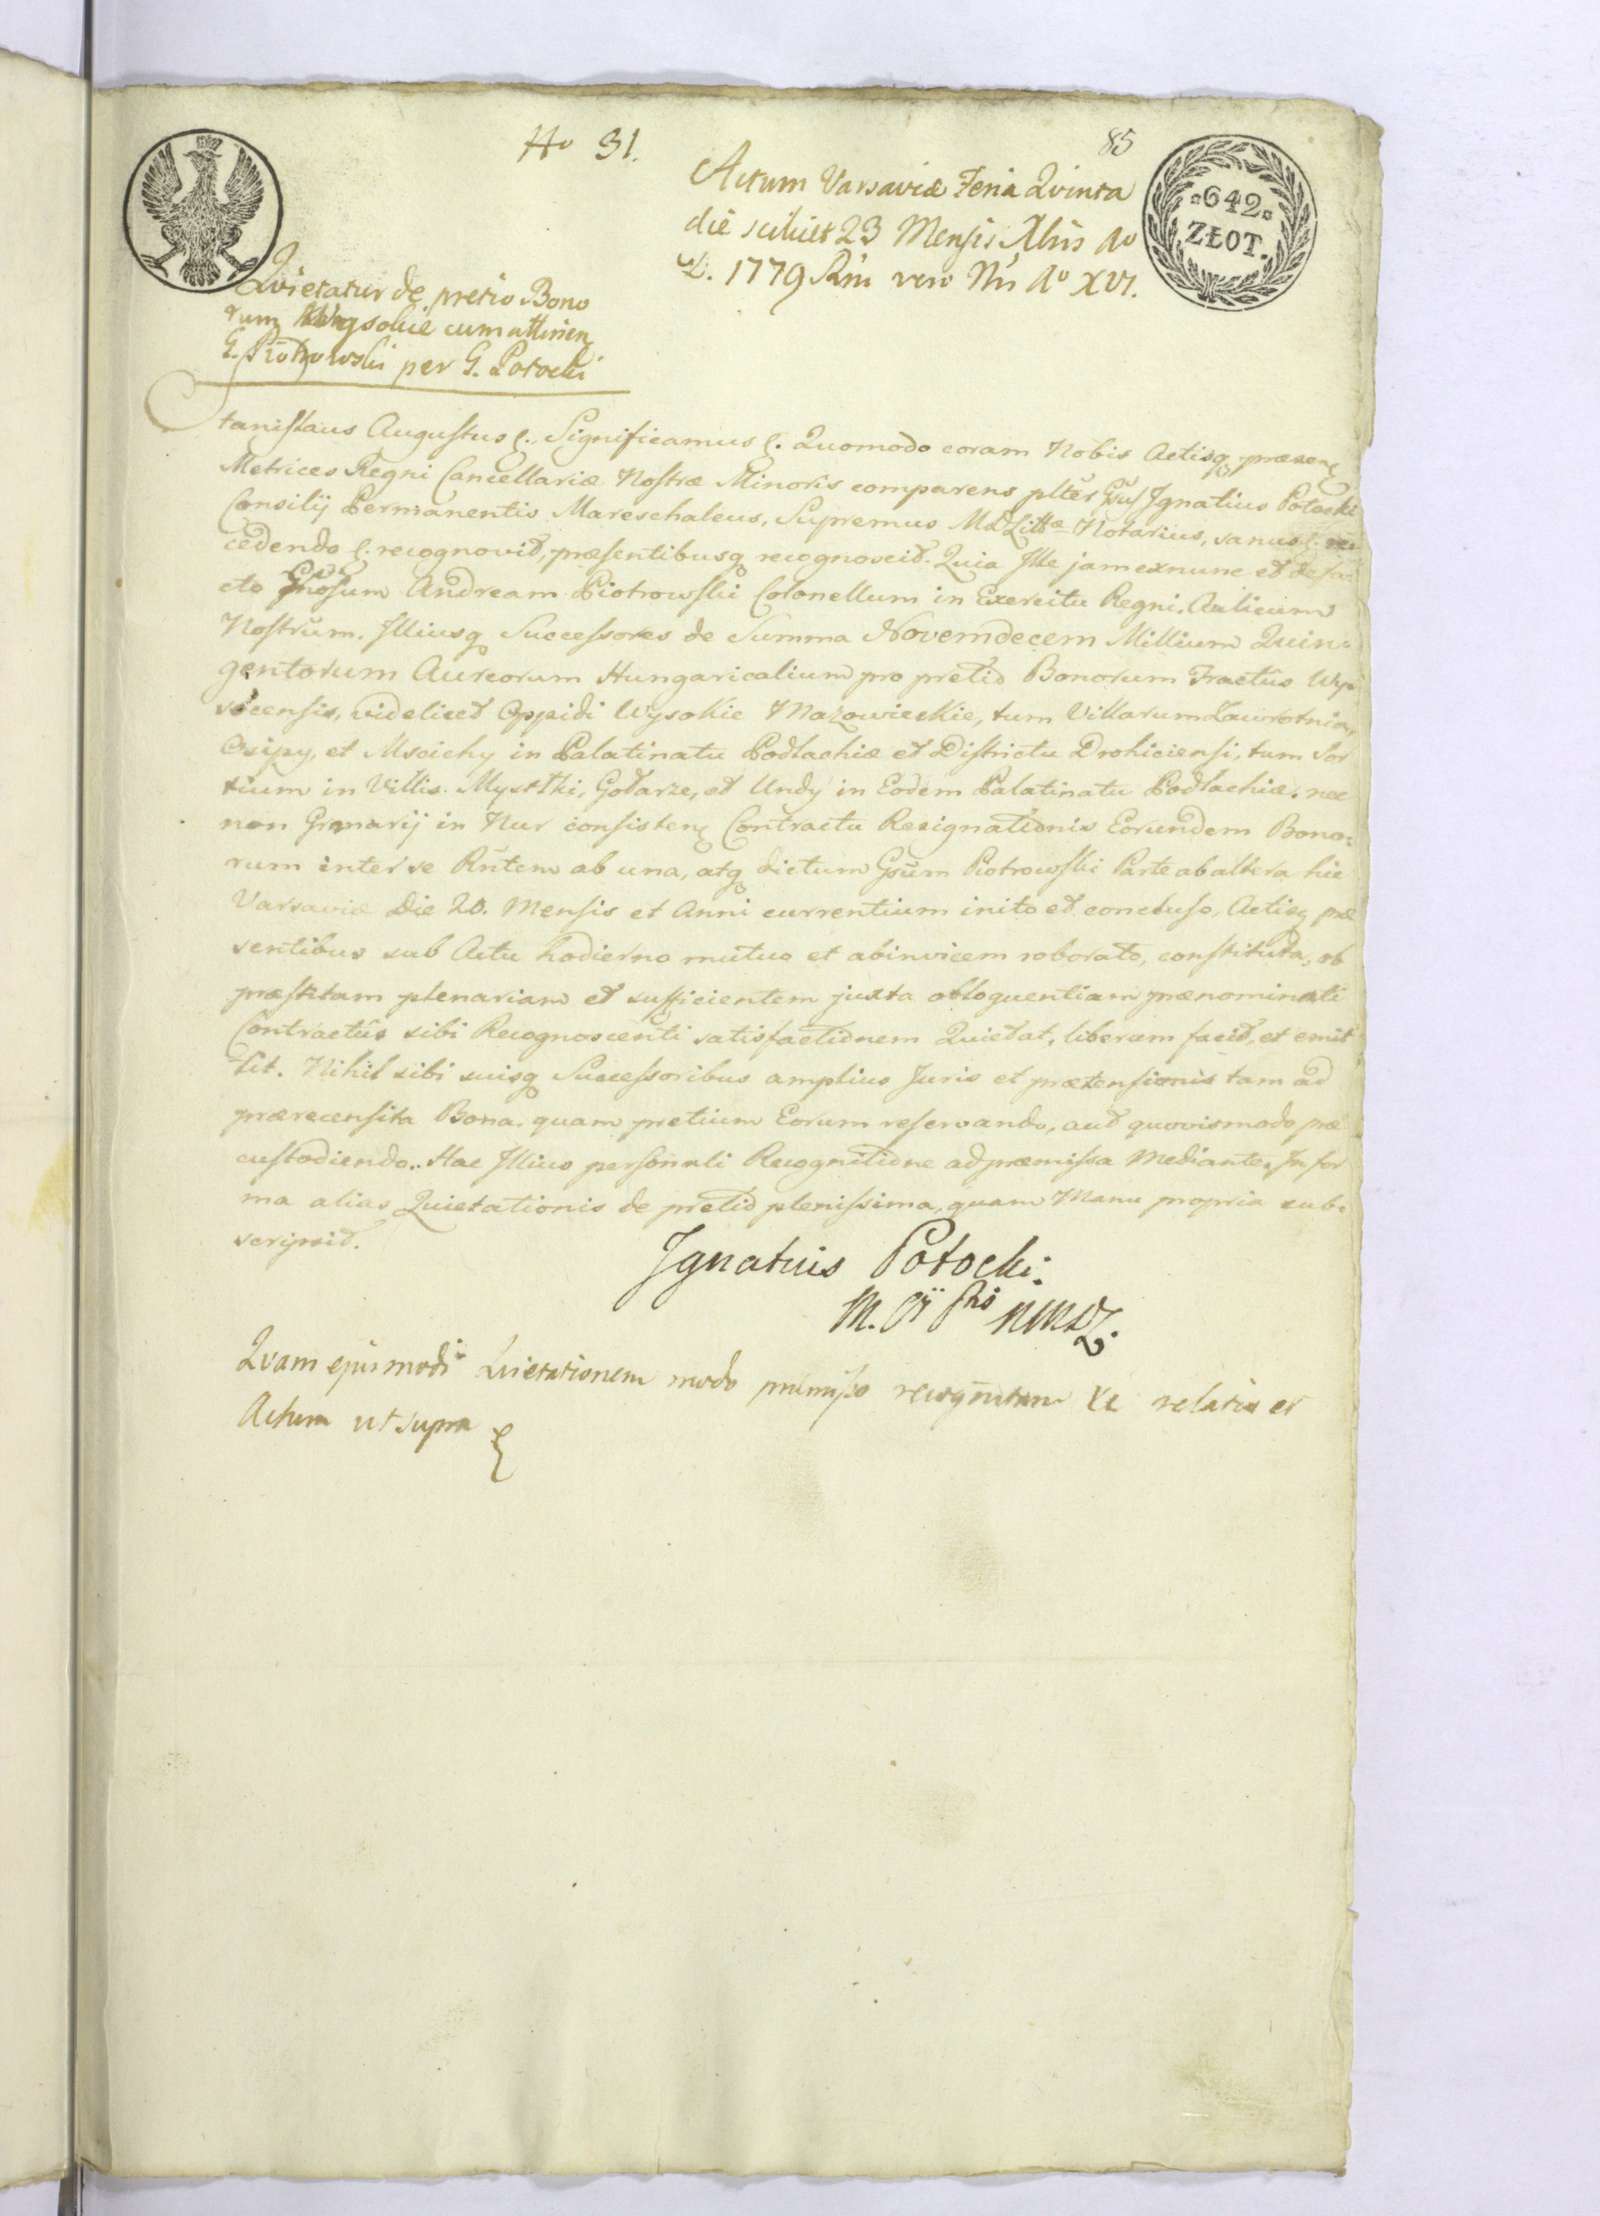 No 31.
85
Actum Varsaviæ Feria Qvinta
die scilicet 23 Mensis Xbris Ao
D. 1779 Rni vero Nri Ao XVI.
¤642¤
ZŁOT.
Qvietatur de pretio Bono
rum Wysokie cum attinen
G. Piotrowski per G. Potocki
Stanislaus Augustus Significamus Quomodo coram Nobis Actisq præsen
Metrices Regni Cancellariæ Nostræ Minoris comparens plter Gsus Ignatius Potocki
Consilij Permanentis Mareschalcus, Supremus MDLittæ Notarius, sanus
cedendo recognovit, præsentibusq recognoscit. Quia Ille jam exnunc et de fa
cto Gnosum Andream Piotrowski Colonellum in Exercitu Regni, Aulicum
Nostrum, Illiusq Successores de Summa Novemdecem Millium Quin
gentorum Aureorum Hungaricalium pro pretio Bonorum Tractûs Wy
socensis, videlicet Oppidi Wysokie Mazowieckie, tum Villarum
Osipy, et Mscichy in Palatinatu Podlachiæ et Districtu Drohiciensi, tum Sor
tium in Villis Mystki, Gołarze, et Undy in Eodem Palatinatu Podlachiæ, nec
non Granarij in Nur consisten Contractu Resignationis Eorundem Bono
rum inter se Rntem ab una, atq dictum Gsum Piotrowski Parte ab altera hic
Varsaviæ Die 20. Mensis et Anni currentium inito et concluso, Actisq præ
sentibus sub Actu hodierno mutuo et abinvicem roborato, constituta, ob
præstitam plenariam et sufficientem juxta obloquentiam prænominati
Contractûs sibi Recognoscenti satisfactionem Quietat, liberum facit, et emit
tit. Nihil sibi suisq Successoribus amplius Juris et prætensionis tam ad
prærecensita Bona, quam pretium Eorum reservando, aut quovismodo præ
custodiendo. Hac Illius personali Recognitione ad præmissa Mediante, In for
ma alias Quietationis de pretio plenissima, quam Manu propria sub
scripsit.
Ignatius Potocki
Qvam ejusmodi Qvietationem modo præmisso recognitam relatis et
Actum ut supra